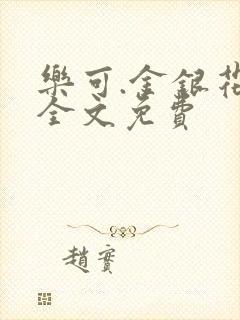 樂可.金銀花
全文免費
趙寶